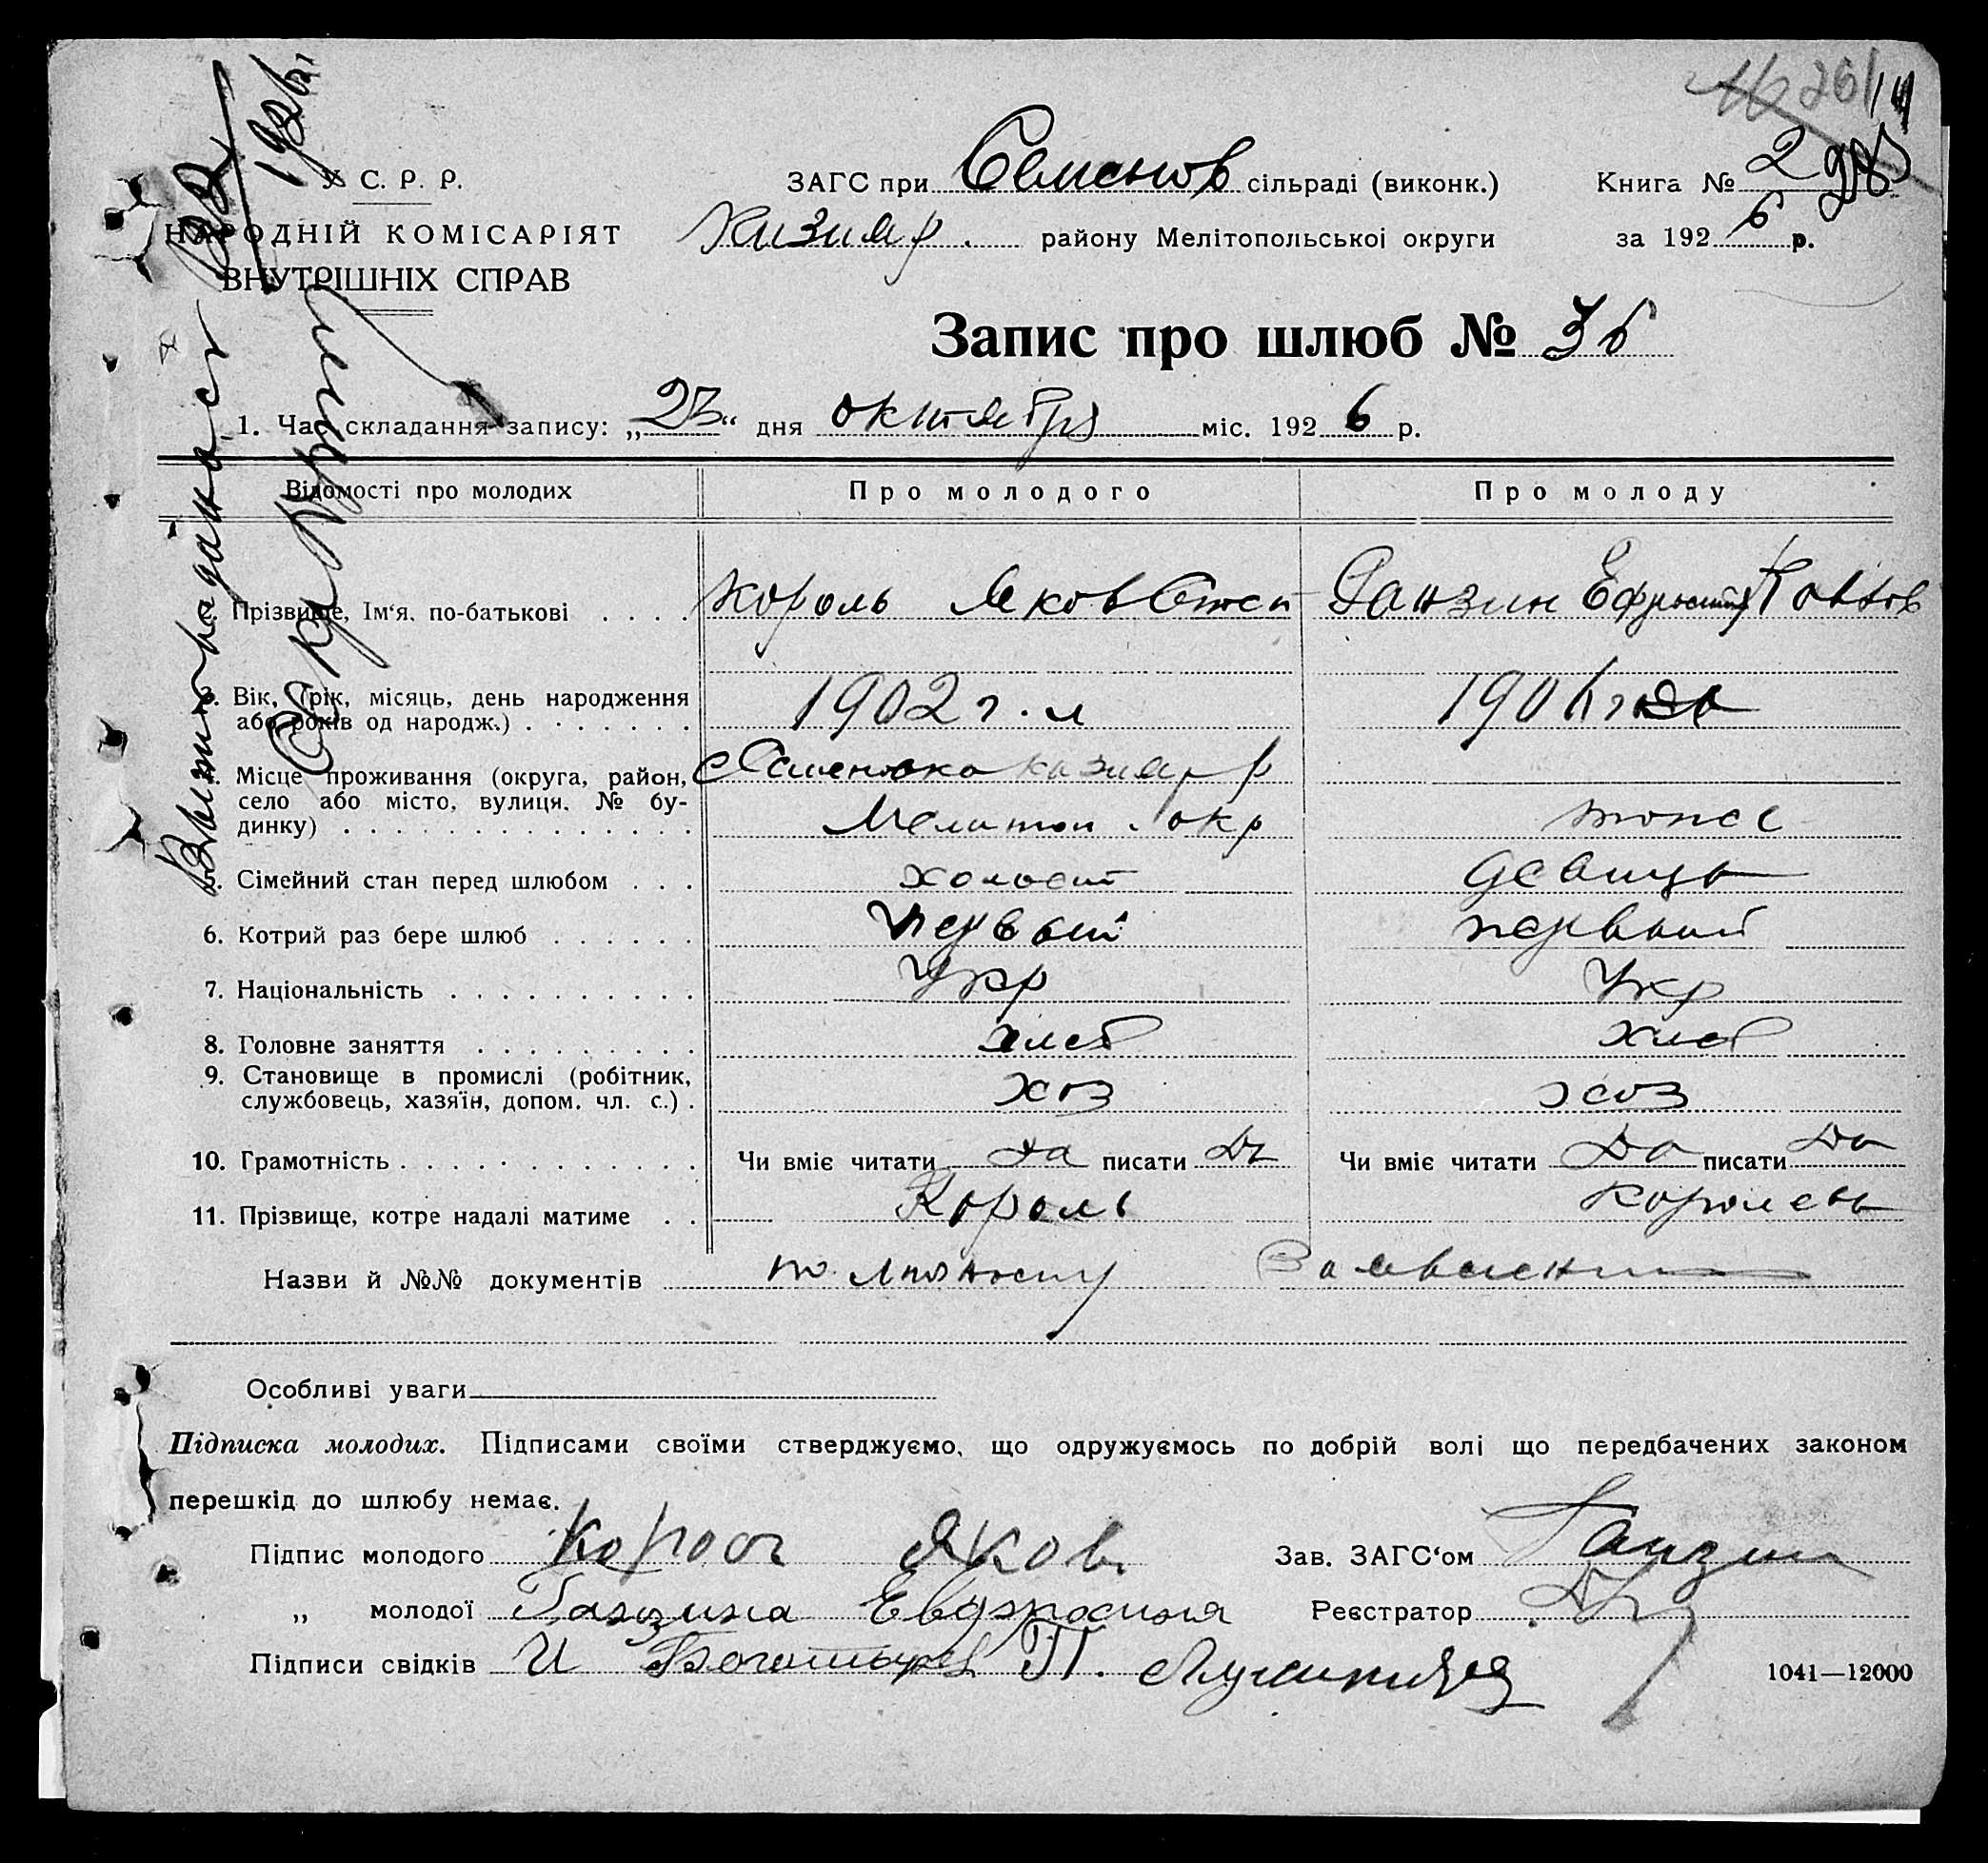 У С. Р. Р.
НАРОДНІЙ КОМІСАРІЯТ
ВНУТРІШНІХ СПРАВ
ЗАГС при Семенов сільраді (виконк.)
Кизияр. району Мелітопольської округи
Книга № 2
за 1926 р.
Запис про шлюб № 36
1. Час складання запису: „23“ дня октября міс. 1926 р.
Відомості про молодих Про молодого Про молоду
Прізвище, Ім'я, по-батькові . . . . Король Яков Ганзин
Вік, (рік, місяць, день народження
або років од народж.) . . . . . . . 1902 г.
Місце проживання (округа, район, Семеновка Кизияр р
село або місто, вулиця, № бу-
динку) . . . . . . . . . . . . . . Мелитоп. окр тоже
Сімейний стан перед шлюбом . . . холост девиць
6. Котрий раз бере шлюб . . . . . . первый первый
7. Національність . . . . . . . . . . Укр Укр
8. Головне заняття . . . . . . . . . хлеб хлеб
9. Становище в промислі (робітник,
службовець, хазяїн, допом. чл. с.) . хоз хоз
10. Грамотність . . . . . . . . . . . . Чи вміє читати да писати Да Чи вміє читати Да писати Да
11. Прізвище, котре надалі матиме . . Король
Назви й №№ документів по личному
Особливі уваги
Підписка молодих. Підписами своїми стверджуємо, що одружуємось по добрій волі що передбачених законом
перешкід до шлюбу немає.
Підпис молодого Король Яков Зав. ЗАГС'ом Ганзин
„ молодої Ганзина Евдфросиния Реєстратор
Підписи свідків И Богатырев П.
1041—12000